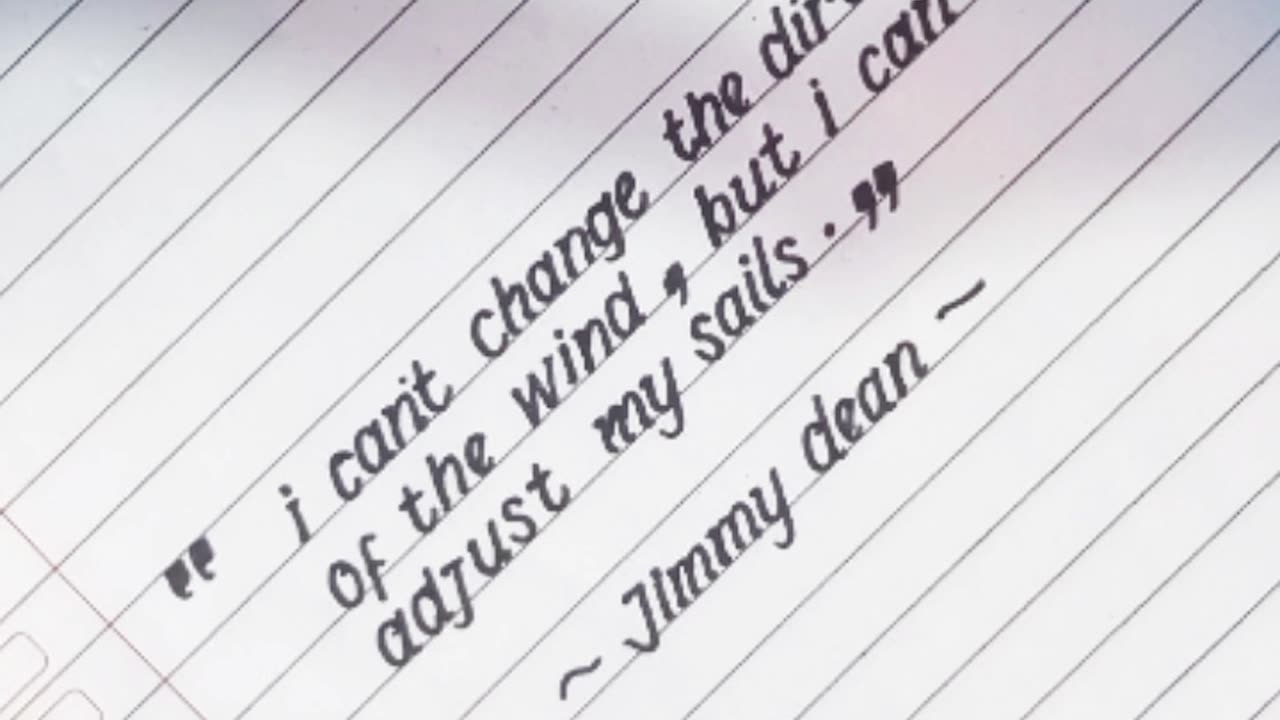 " i can't change the dir
of the wind, but i can
adjust my sails."
~ Jimmy dean ~